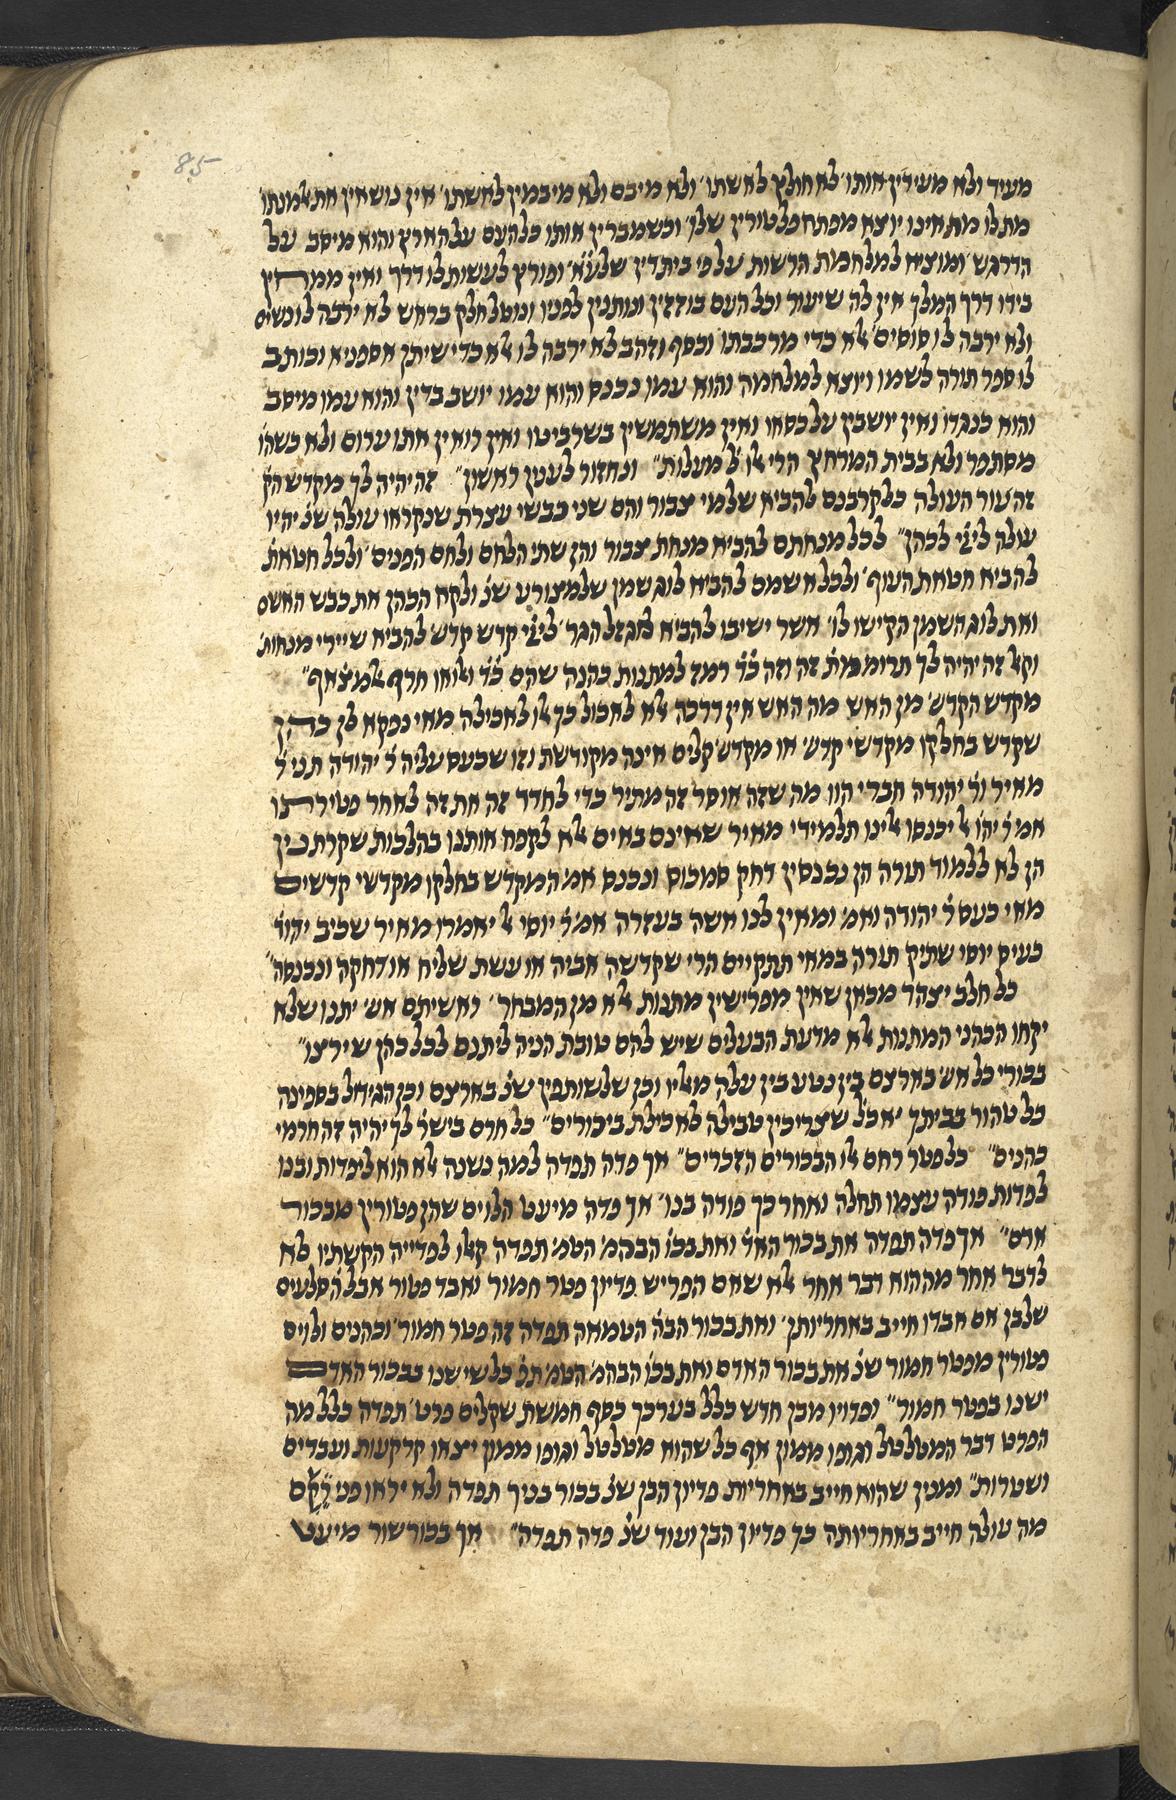 85
מעיד ולא מעידין אותו לא חולץ לאשתו׳ ולא מיבם ולא מיבמין לאשתו׳ אין נושאין את אלמנתו
מת לו מת אינו יוצא מפתח פלטורין שלו׳ וכשמברין אותו כל העם על הארץ והוא מיסב על
הדרגש׳ ומוציא למלחמות הרשות על פי בית דין של ע״א׳ ופורץ לעשות לו דרך ואין ממחין
בידו דרך המלך אין לה שיעור וכל העם בוזזין ונותנין לפניו ונוטל חלק בראש לא ירבה לו נשים
ולא ירבה לו סוסים׳ אלא כדי מרכבתו וכסף וזהב לא ירבה לו אלא כדי שיתן אספניא וכותב
לו ספר תורה לשמו ויוצא למלחמה והוא עמו נכנס והוא עמו יושב בדין והוא עמו מיסב
והוא כנגדו ואין יושבין על כסאו ואין משתמשין בשרביטו ואין רואין אותו ערום ולא כשהו׳
מסתפר ולא בבית המרחץ הרי אלו ל׳ מעלות״ ונחזור לענין ראשון״ זה יהיה לך מקדש הק׳
זה עור העולה כל קרבנם להביא שלמי צבור והם שני כבשי עצרת שנקראו עולה שנ׳ יהיו
עולה לי״י לכהן״ לכל מנחתם להביא מנחת צבור והן שתי הלחם ולחם הפנים׳ ולכל חטאת׳
להביא חטאת העוף׳ ולכל אשמם להביא לוג שמן של מצורע שנ׳ ולקח הכהן את כבש האשם
ואת לוג השמן הקישו לו׳ אשר ישיבו להביא לגזל הגר׳ לי״י קדש קדש להביא שיירי מנחות׳
וקל׳ זה יהיה לך תרומת זה וזה כ״ד רמז למתנות כהנה שהם כ״ד ואותו חרף אלמ׳ צאף״
מקדש הקדש׳ מן האש מה האש אין דרכה אלא לאכול כך אלו לאכילה מאי נפקא לן כהן
שקדש בחלקו מקדשי קדש׳ או מקדש׳ קלים אינה מקודשת וזו שכעס עליה ר׳ יהודה תני ר׳
מאיר ור׳ יהודה חברי הוו מה שזה אוסר זה מתיר כדי לחדד זה את זה לאחר פטירתו
אמ׳ ר׳ יהו׳ אל יכנסו אלינו תלמידי מאיר שאינם באים אלא לקפח אותנו בהלכות שקרת בין
הן לא ללמוד תורה הן נכנסין דחק סמכוס ונכנס אמ׳ המקדש בחלקו מקדשי קדשים
מאי כעס ר׳ יהודה ואמ׳ ומאין לנו אשה בעזרה אמ׳ ר׳ יוסי אל יאמרו מאיר שכיב יהוד׳
כעיס יוסי שתיק תורה במאי תתקיים הרי שקדשה אביה או עשת שליח או דחקה ונכנסה״
כל חלב יצהר מכאן שאין מפרישין מתנות אלא מן המבחר׳ ראשיתם אש׳ יתנו שלא
יקחו הכהני המתנות אלא מדעת הבעלים שיש להם טובת הניה ליתנם לכל כהן שירצו״
בכורי כל אש׳ בארצם בין נטע בין עלה מאליו וכן של שותפין שנ׳ בארצם וכן הגידול בספינה
כל טהור בביתך יאכל׳ שצריכין טבילה לאכילת ביכורים״ כל חרם בישר׳ לך יהיה זה חרמי
כהנים״ כל פטר רחם אלו הבכורים הזכרים״ אך פדה תפדה למה נשנה אלא הוא ליפדות ובנו
לפדות פודה עצמו תחלה ואחר כך פודה בנו׳ אך פדה מיעט הלוים שהן פטורין מבכור
אדם״ אך פדה תפדה את בכור האד׳ ואת בכו׳ הבהמ׳ הטמ׳ תפדה קאלו לפדייה הקשתיו לא
לדבר אחר מה הוא דבר אחר אלא שאם הפריש פדיון פטר חמור ואבד פטור אבל הסלעים
שלבן אם אבדו חייב באחריותן׳ ואת בכור הבה׳ הטמאה תפדה זה פטר חמור׳ וכהנים ולוים
פטורין מפטר חמור שנ׳ את בכור האדם ואת בכו׳ הבהמ׳ הטמ׳ תפ׳ כל שישנו בבכור האדם
ישנו בפטר חמור״ ופדוין מבן חדש כלל בערכך כסף חמשת שקלים פרט׳ תפדה כלל מה
הפרט דבר המטלטל וגופו ממון אף כל שהוא מטלטל וגופו ממון יצאו קרקעות ועבדים
ושטרות״ ומנין שהוא חייב באחריות פדיון הבן שנ׳ בכור בניך תפדה ולא יראו פני ריקם
מה עולה חייב באחריותה כך פדיון הבן ועוד שנ׳ פדה תפדה״ אך בכור שור מיעט